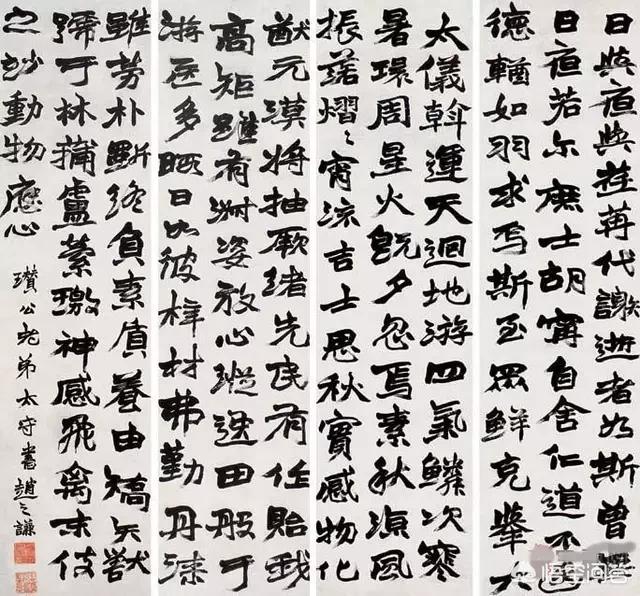 日與夜與荏苒代謝逝者如斯曾
日夜若尔庶士胡寧自舍仁道不遐
德輶如羽求焉斯至眾鮮克舉大
太儀斡運天迴地游四氣鱗次寒
暑環周星火既夕忽焉素秋涼風
振落熠〻宵流吉士思秋實感物化
猷元漠將抽厥緒先民有作貽我
高矩雖有淑姿放心縱逸田般于
游居多暇日如彼梓材弗勤丹漆
雖勞朴斲終負素質養由矯矢獸
號于林捕盧縈繳神感飛禽末伎
之妙動物應心
瓚公老弟太守書 趙之謙
悟空问答